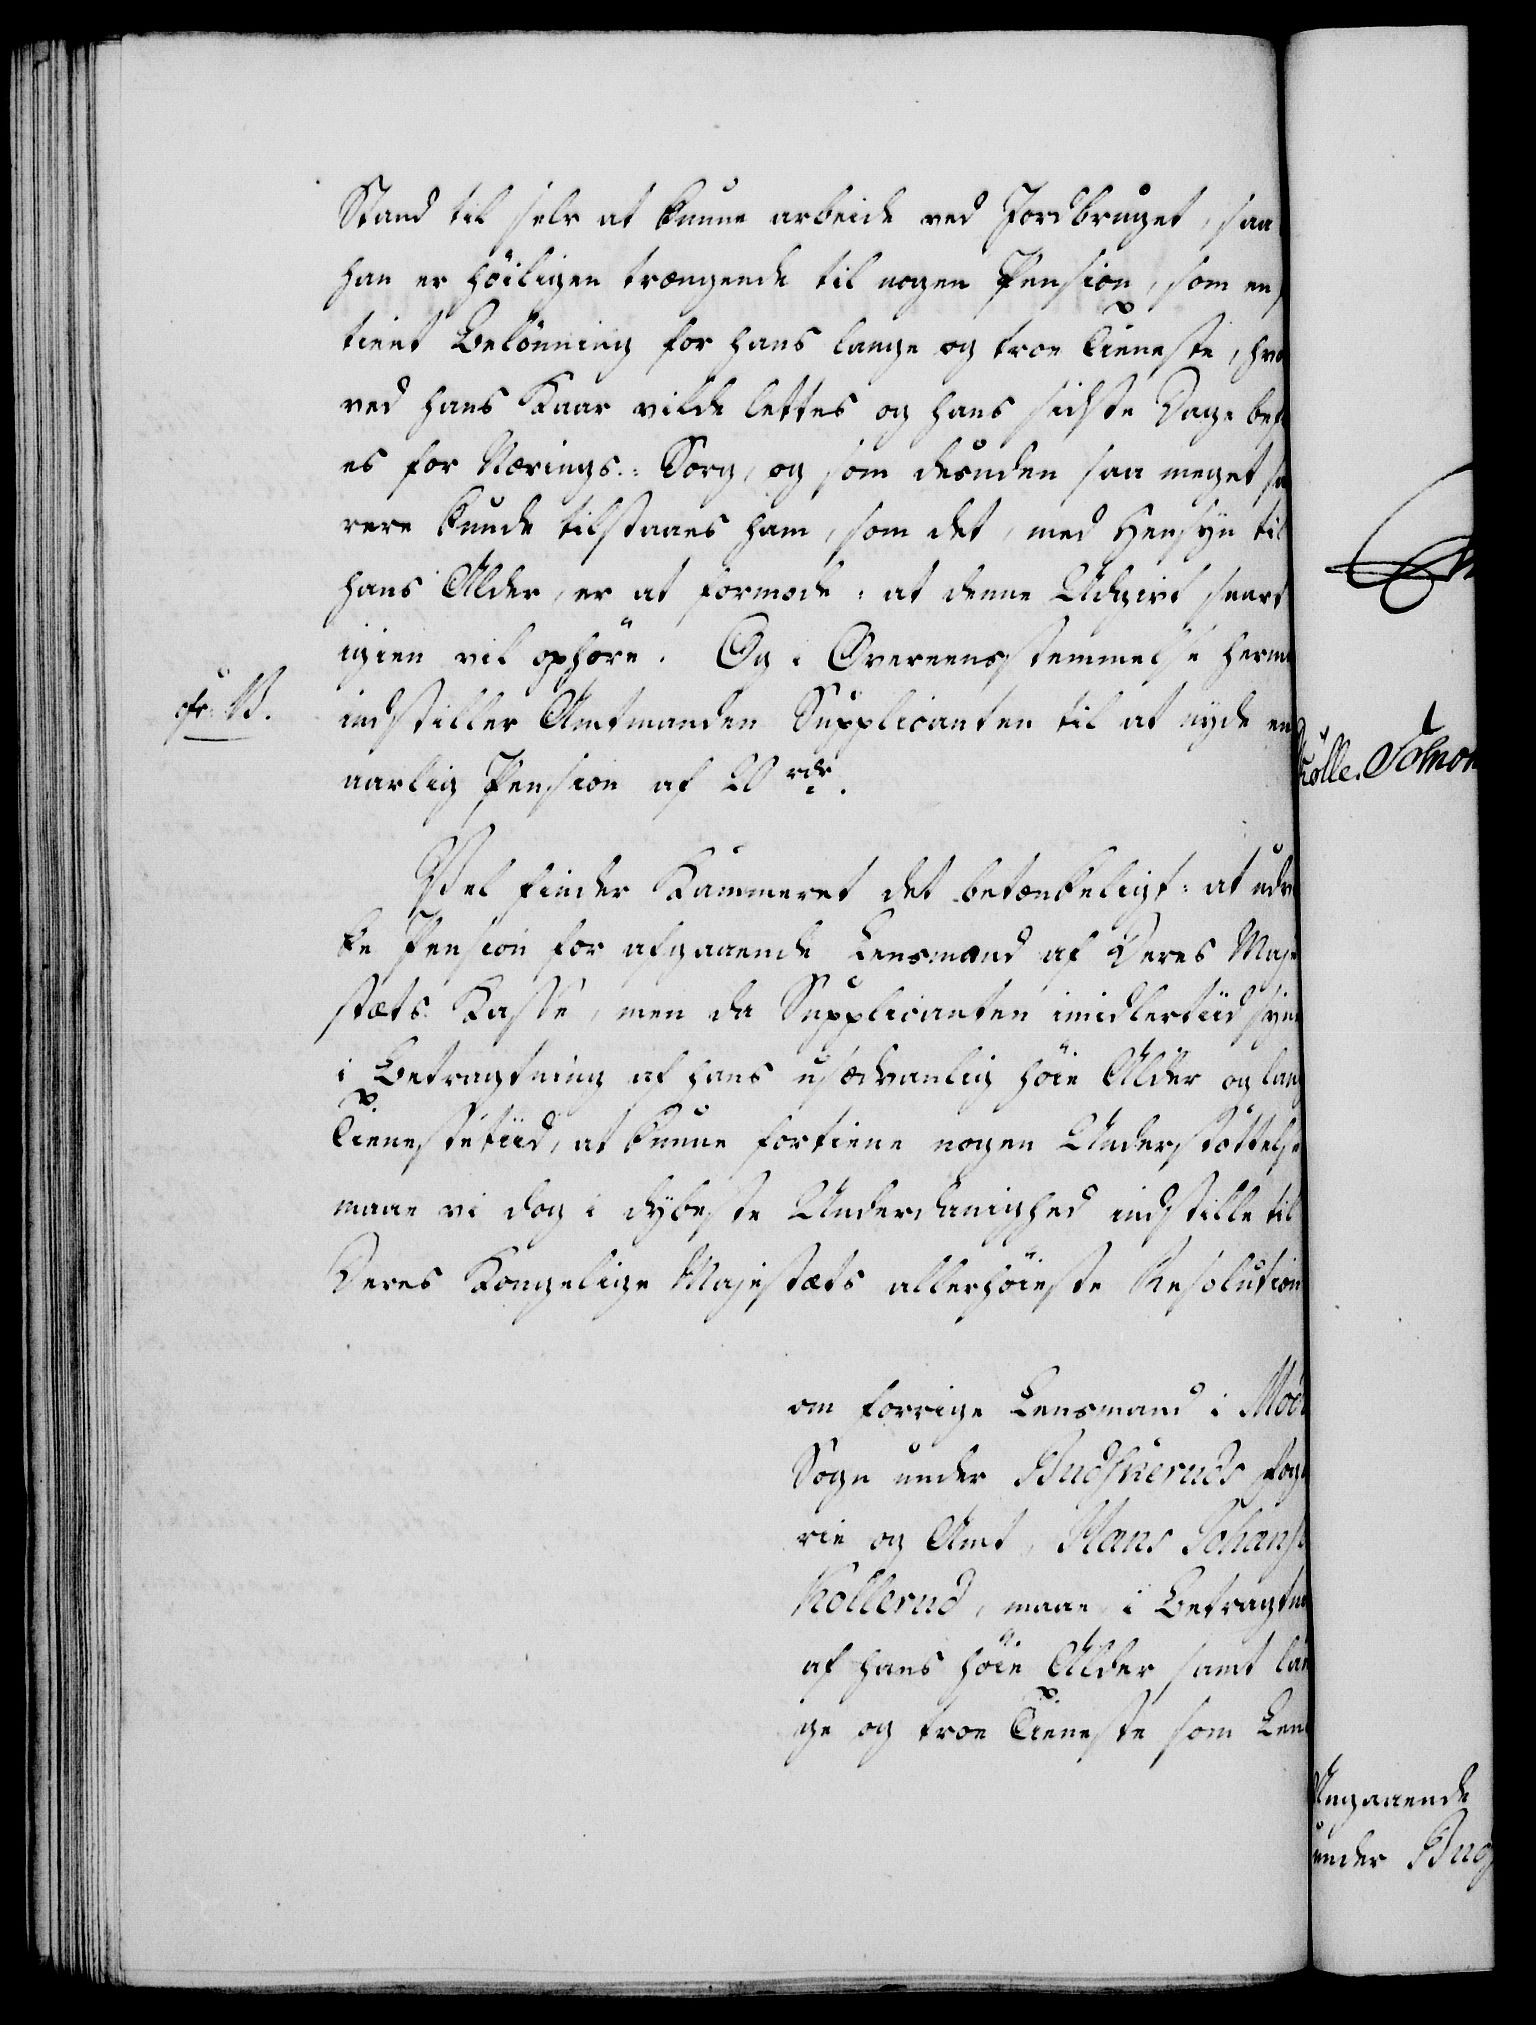 Stand til selv at kunne arbeide ved Jordbruget, saa
han er høiligen trængende til nogen Pension, som en
tient Belønning for hans lange og troe Tieneste, hvo
ved hans Kaar vilde lettes og hans sidste Dage be
es for Nærings-Sorg, og som desuden saa meget
rere kunde tilstaaes ham, som det, med Hensyn til
hans Alder, er at formode: at denne Udgivt snart
igien vil ophøre. Og i Overeensstemmelse herme
cfr. B.
indstiller Amtmanden Supplicanten til at nyde en
aarlig Pension af 20 rdr.
Vel finder Kammeret det betænkeligt: at udv
ke Pension for afgaaende Lensmænd af Deres Maje
stæts Kasse, men da Supplicanten imidlertiid syne
i Betragtning af hans usædvanlig høie Alder og lang
Tienestetiid, at kunne fortiene nogen Understøttelse
maae vi dog i dybeste Underdanighed indstille til
Deres Kongelige Majestæts allerhøieste Resolution
om forrige Lensmand i Mod
Sogn under Budskeruds Fog
rie og Amt, Hans Johans
Kollerud, maae, i Betragtn
af hans høie Alder samt lan
ge og troe Tieneste som Len
Angaaende
under Bug